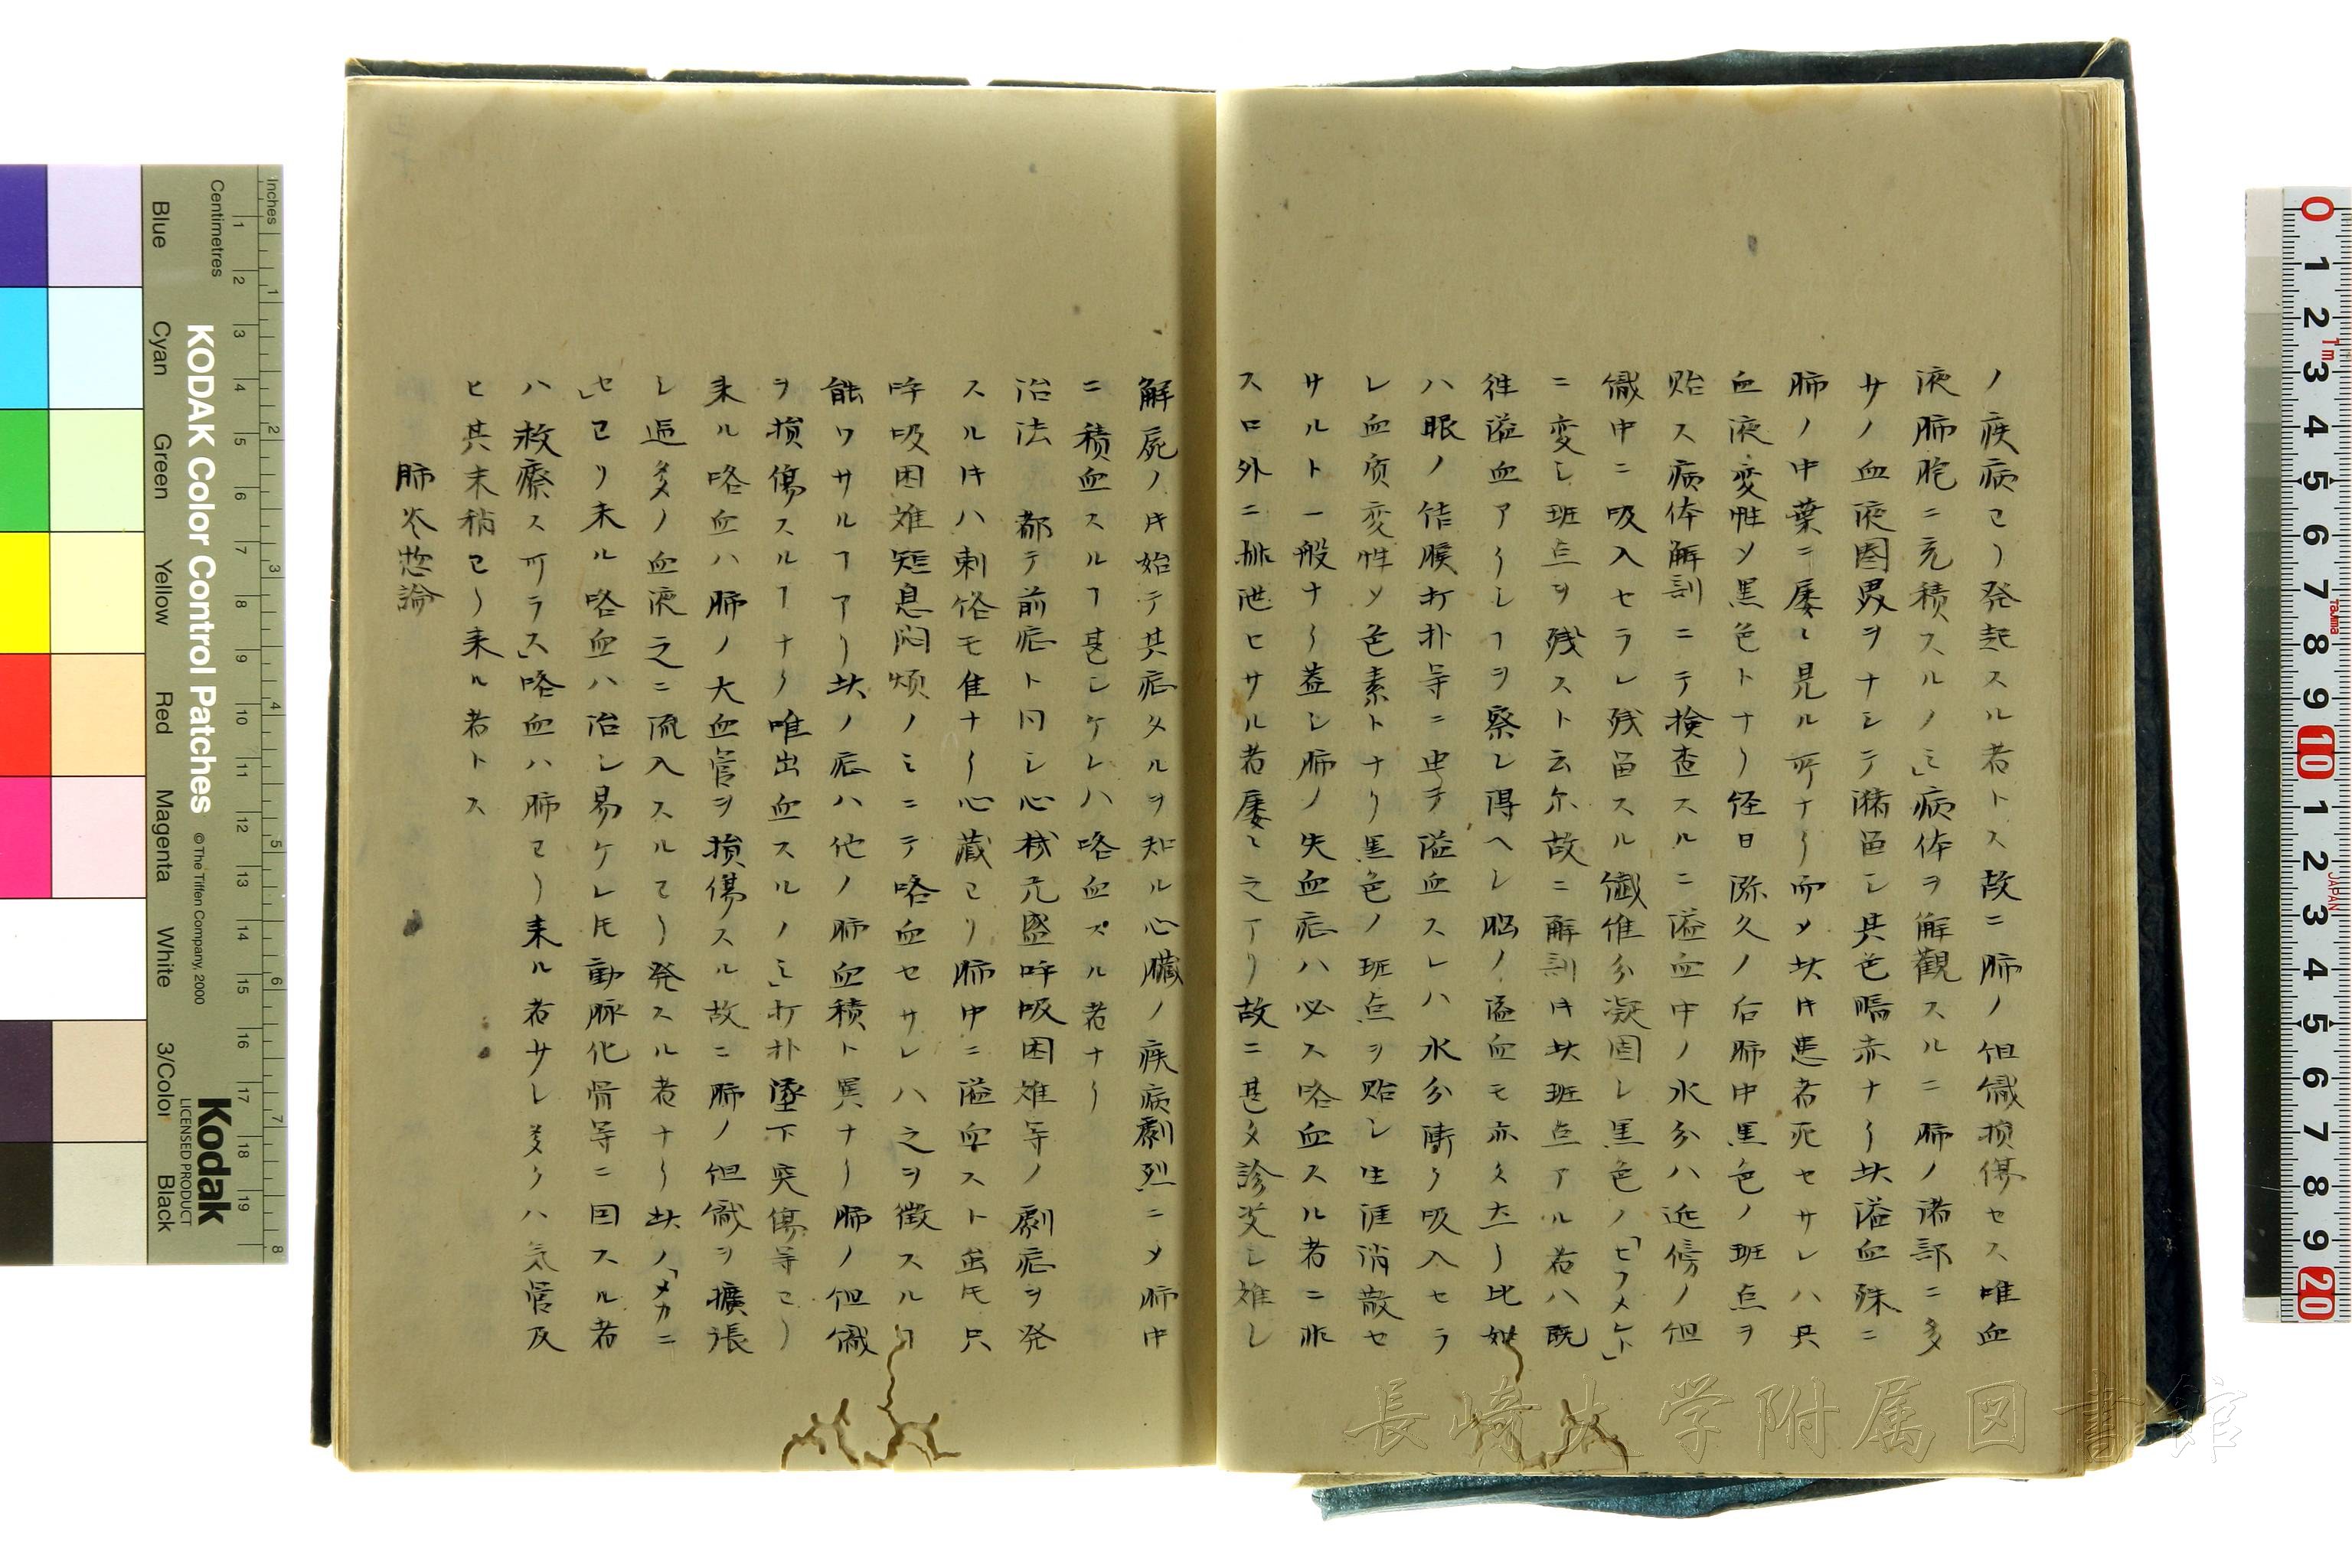 ノ疾病ヨリ発起スル者トス故ニ肺ノ但織損傷セス唯血
液肺胞ニ充積スルノミ」病体ヲ解観スルニ肺ノ諸部ニ多
サノ血液圏界ヲナシテ瀦畄シ其色暗赤ナリ此溢血殊ニ
肺ノ中葉ニ屡々見ル所ナリ而メ此時患者死セサレハ其
血液変性メ黒色トナリ経日弥久ノ后肺中黒色ノ班点ヲ
貽ス病体解剖ニテ検査スルニ溢血中ノ水分ハ近傍ノ但
織中ニ吸入セラレ残畄スル纎維分凝固シ黒色ノ「ヒクメント」
ニ変シ班点ヲ残スト云尓故ニ解剖時此班点アル者ハ既
往溢血アリシヿヲ察シ得ヘシ脳ノ溢血モ亦タ然リ比如
ハ眼ノ結膜打扑等ニ由テ溢血スレハ水分漸ク吸入セラ
レ血質変性メ色素トナリ黒色ノ班点ヲ貽シ生涯消散セ
サルト一般ナリ蓋シ肺ノ失血症ハ必ス咯血スル者ニ非
ス口外ニ排泄セサル者屡々之アリ故ニ甚タ診定シ難シ
解屍ノ時始テ其症タルヲ知ル心臓ノ疾病劇烈ニメ肺中
ニ積血スルヿ甚シケレハ咯血スル者ナリ
治法 都テ前症ト同シ心機亢盛呼吸困難等ノ劇症ヲ発
スル時ハ刺絡モ佳ナリ心蔵ヨリ肺中ニ溢血スト虽モ只
呼吸困難短息悶煩ノミニテ咯血セサレハ之ヲ徴スル
能ワサルヿアリ此ノ症ハ他ノ肺血積ト異ナリ肺ノ但織
ヲ損傷スルヿナク唯出血スルノミ」打扑墜下突傷等ヨリ
来ル咯血ハ肺ノ大血管ヲ損傷スル故ニ肺ノ但織ヲ擴張
シ過多ノ血液之ニ流入スルヨリ発スル者ナリ此ノ「メカニ
」セヨリ来ル咯血ハ治シ易ケレ圧動脉化骨等ニ因スル者
ハ救療ス可ラス」咯血ハ肺ヨリ来ル者サレ多クハ気管及
ヒ其末稍ヨリ来ル者トス
肺炎惣論
長崎大学附属図書館
KODAK Color Control Patches
© The Tiffen Company, 2000
Kodak
LICENSED PRODUCT
Inches
Centimetres
Blue
Cyan
Green
Yellow
Red
Magenta
White
3/Color
Black